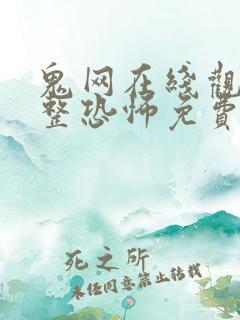 鬼网在线觀
整恐怖免費
死之所
未经同意禁止转载